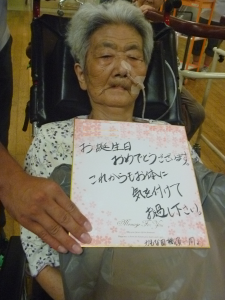 お誕生日
おめでとうございます。
これからもお体に
気を付けて
お過し下さい。
Always Be You